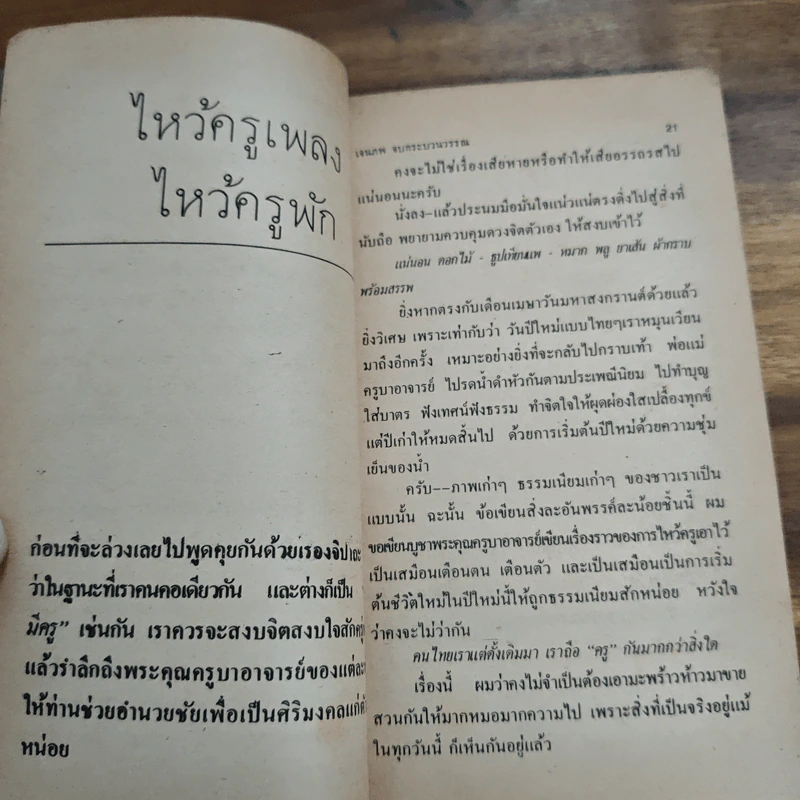 ไหว้ครูเพลง
ไหว้ครูพัก
ก่อนที่จะล่วงเลยไปพูดคุยกันด้วยเรื่องจิปาถะ
ว่าในฐานะที่เราคนคอเดียวกัน และต่างก็เป็น
มีครู” เช่นกัน เราควรจะสงบจิตสงบใจสัก
แล้วรำลึกถึงพระคุณครูบาอาจารย์ของแต่ละ
ให้ท่านช่วยอำนวยชัยเพื่อเป็นศิริมงคลแก่
หน่อย
เจนภพ จบกระบวนวรรณ 21
คงจะไม่ใช่เรื่องเสียหายหรือทำให้เสียอรรถรสไป
แน่นอนนะครับ
นั่งลง-แล้วประนมมือมั่นใจแน่วแน่ตรงดิ่งไปสู่สิ่งที่
นับถือ พยายามควบคุมดวงจิตตัวเอง ให้สงบเข้าไว้
แน่นอน ดอกไม้ - ธูปเทียนแพ - หมาก พลู ยาเส้น ผ้ากราบ
พร้อมสรรพ
ยิ่งหากตรงกับเดือนเมษาวันมหาสงกรานต์ด้วยแล้ว
ยิ่งวิเศษ เพราะเท่ากับว่า วันปีใหม่แบบไทยๆเราหมุนเวียน
มาถึงอีกครั้ง เหมาะอย่างยิ่งที่จะกลับไปกราบเท้า พ่อแม่
ครูบาอาจารย์ ไปรดน้ำดำหัวกันตามประเพณีนิยม ไปทำบุญ
ใส่บาตร ฟังเทศน์ฟังธรรม ทำจิตใจให้ผุดผ่องใสเปลื้องทุกข์
แต่ปีเก่าให้หมดสิ้นไป ด้วยการเริ่มต้นปีใหม่ด้วยความชุ่ม
เย็นของน้ำ
ครับ--ภาพเก่าๆ ธรรมเนียมเก่าๆ ของชาวเราเป็น
แบบนั้น ฉะนั้น ข้อเขียนสิ่งละอันพรรค์ละน้อยชิ้นนี้ ผม
ขอเขียนบูชาพระคุณครูบาอาจารย์เขียนเรื่องราวของการไหว้ครูเอาไว้
เป็นเสมือนเตือนตน เตือนตัว และเป็นเสมือนเป็นการเริ่ม
ต้นชีวิตใหม่ในปีใหม่นี้ให้ถูกธรรมเนียมสักหน่อย หวังใจ
ว่าคงจะไม่ว่ากัน
คนไทยเราแต่ดั้งเดิมมา เราถือ “ครู” กันมากกว่าสิ่งใด
เรื่องนี้ ผมว่าคงไม่จำเป็นต้องเอามะพร้าวห้าวมาขาย
สวนกันให้มากหมอมากความไป เพราะสิ่งที่เป็นจริงอยู่แม้
ในทุกวันนี้ ก็เห็นกันอยู่แล้ว